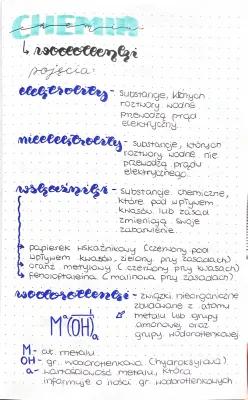 CHEMIA
↳ wodorotlenki
pojęcia:
elektrolity - substancje, których
roztwory wodne
przewodzą prąd
elektryczny.
nieelektrolity - substancje, których
roztwory wodne nie
przewodzą prądu
elektrycznego.
wskaźniki - substancje chemiczne,
które pod wpływem
kwasów lub zasad
zmieniają swoje
zabarwienie.
→ papierek wskaźnikowy (czerwony pod
wpływem kwasów, zielony przy zasadach)
→ oranż metylowy (czerwony przy kwasach)
→ fenoloftaleina (malinowa przy zasadach)
wodorotlenki - związki nieorganiczne
zbudowane z atomu
metalu lub grupy
amonowej oraz
grupy wodorotlenowej
M^a(OH)_a
M - at. metalu
OH - gr. wodorotlenowa (hydroksylowa)
a - wartościowość metalu, która
informuje o ilości gr. wodorotlenowych